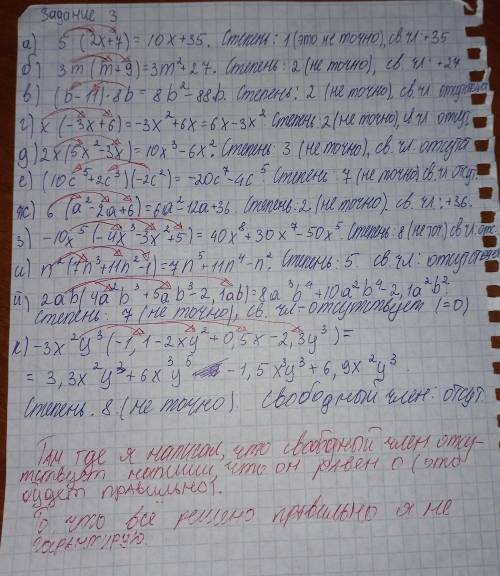 Задание 3
а) 5 (2x+7) = 10x+35. Степень: 1 (это не точно), св. чл: +35
б) 3m (m+9) = 3m²+27. Степень: 2 (не точно), св. чл: +27
в) (b-11)·8b = 8b²-88b. Степень: 2 (не точно), св. чл. отсутств
г) x (-3x+6) = -3x²+6x = 6x-3x² Степень 2 (не точно), св чл отсу.
д) 2x(5x²-3x) = 10x³-6x². Степень: 3 (не точно), св. чл. отсутв
е) (10c⁵+2c³)(-2c²) = -20c⁷-4c⁵. Степень: 7 (не точно) св. чл отсут.
ж) 6 (a²-2a+6) = 6a²-12a+36. Степень: 2. (не точно). св. чл.: +36.
з) -10x⁵(-4x³-3x²+5) = 40x⁸+30x⁷-50x⁵ Степень: 8 (не точ) св чл. отс.
и) n²(7n³+11n²-1) = 7n⁵+11n⁴-n². Степень: 5 св. чл: отсутств
й) 2ab(4a²b³+5ab³-2,1ab) = 8a³b⁴+10a²b⁴-2,1a²b²
Степень: 7 (не точно), св. чл-отсутствует (=0)
к) -3x²y³(-1,1-2xy²+0,5x-2,3y³) =
= 3,3x²y³+6x³y⁵ -1,5x³y³+6,9x²y³
Степень. 8 (не точно). Свободный член: отсут
Там где я написал, что свободный член отсу-
тствует напиши, что он равен 0 (это
будет правильно).
То что всё решено правильно я не
гарантирую